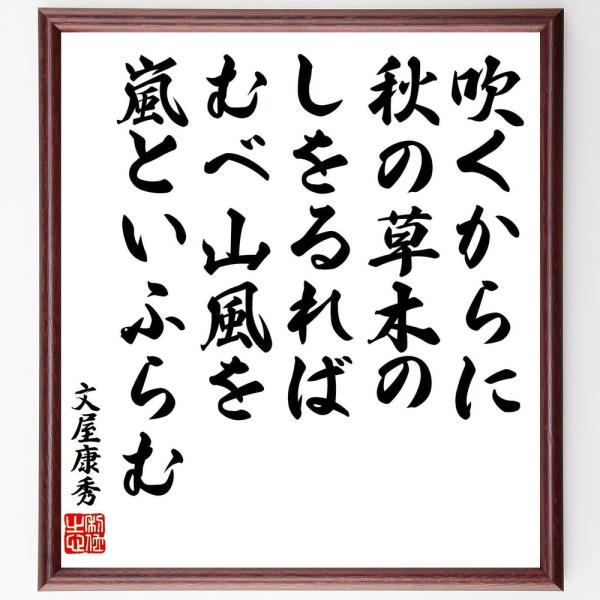 吹くからに
秋の草木の
しをるれば
むべ山風を
嵐といふらむ
文屋康秀